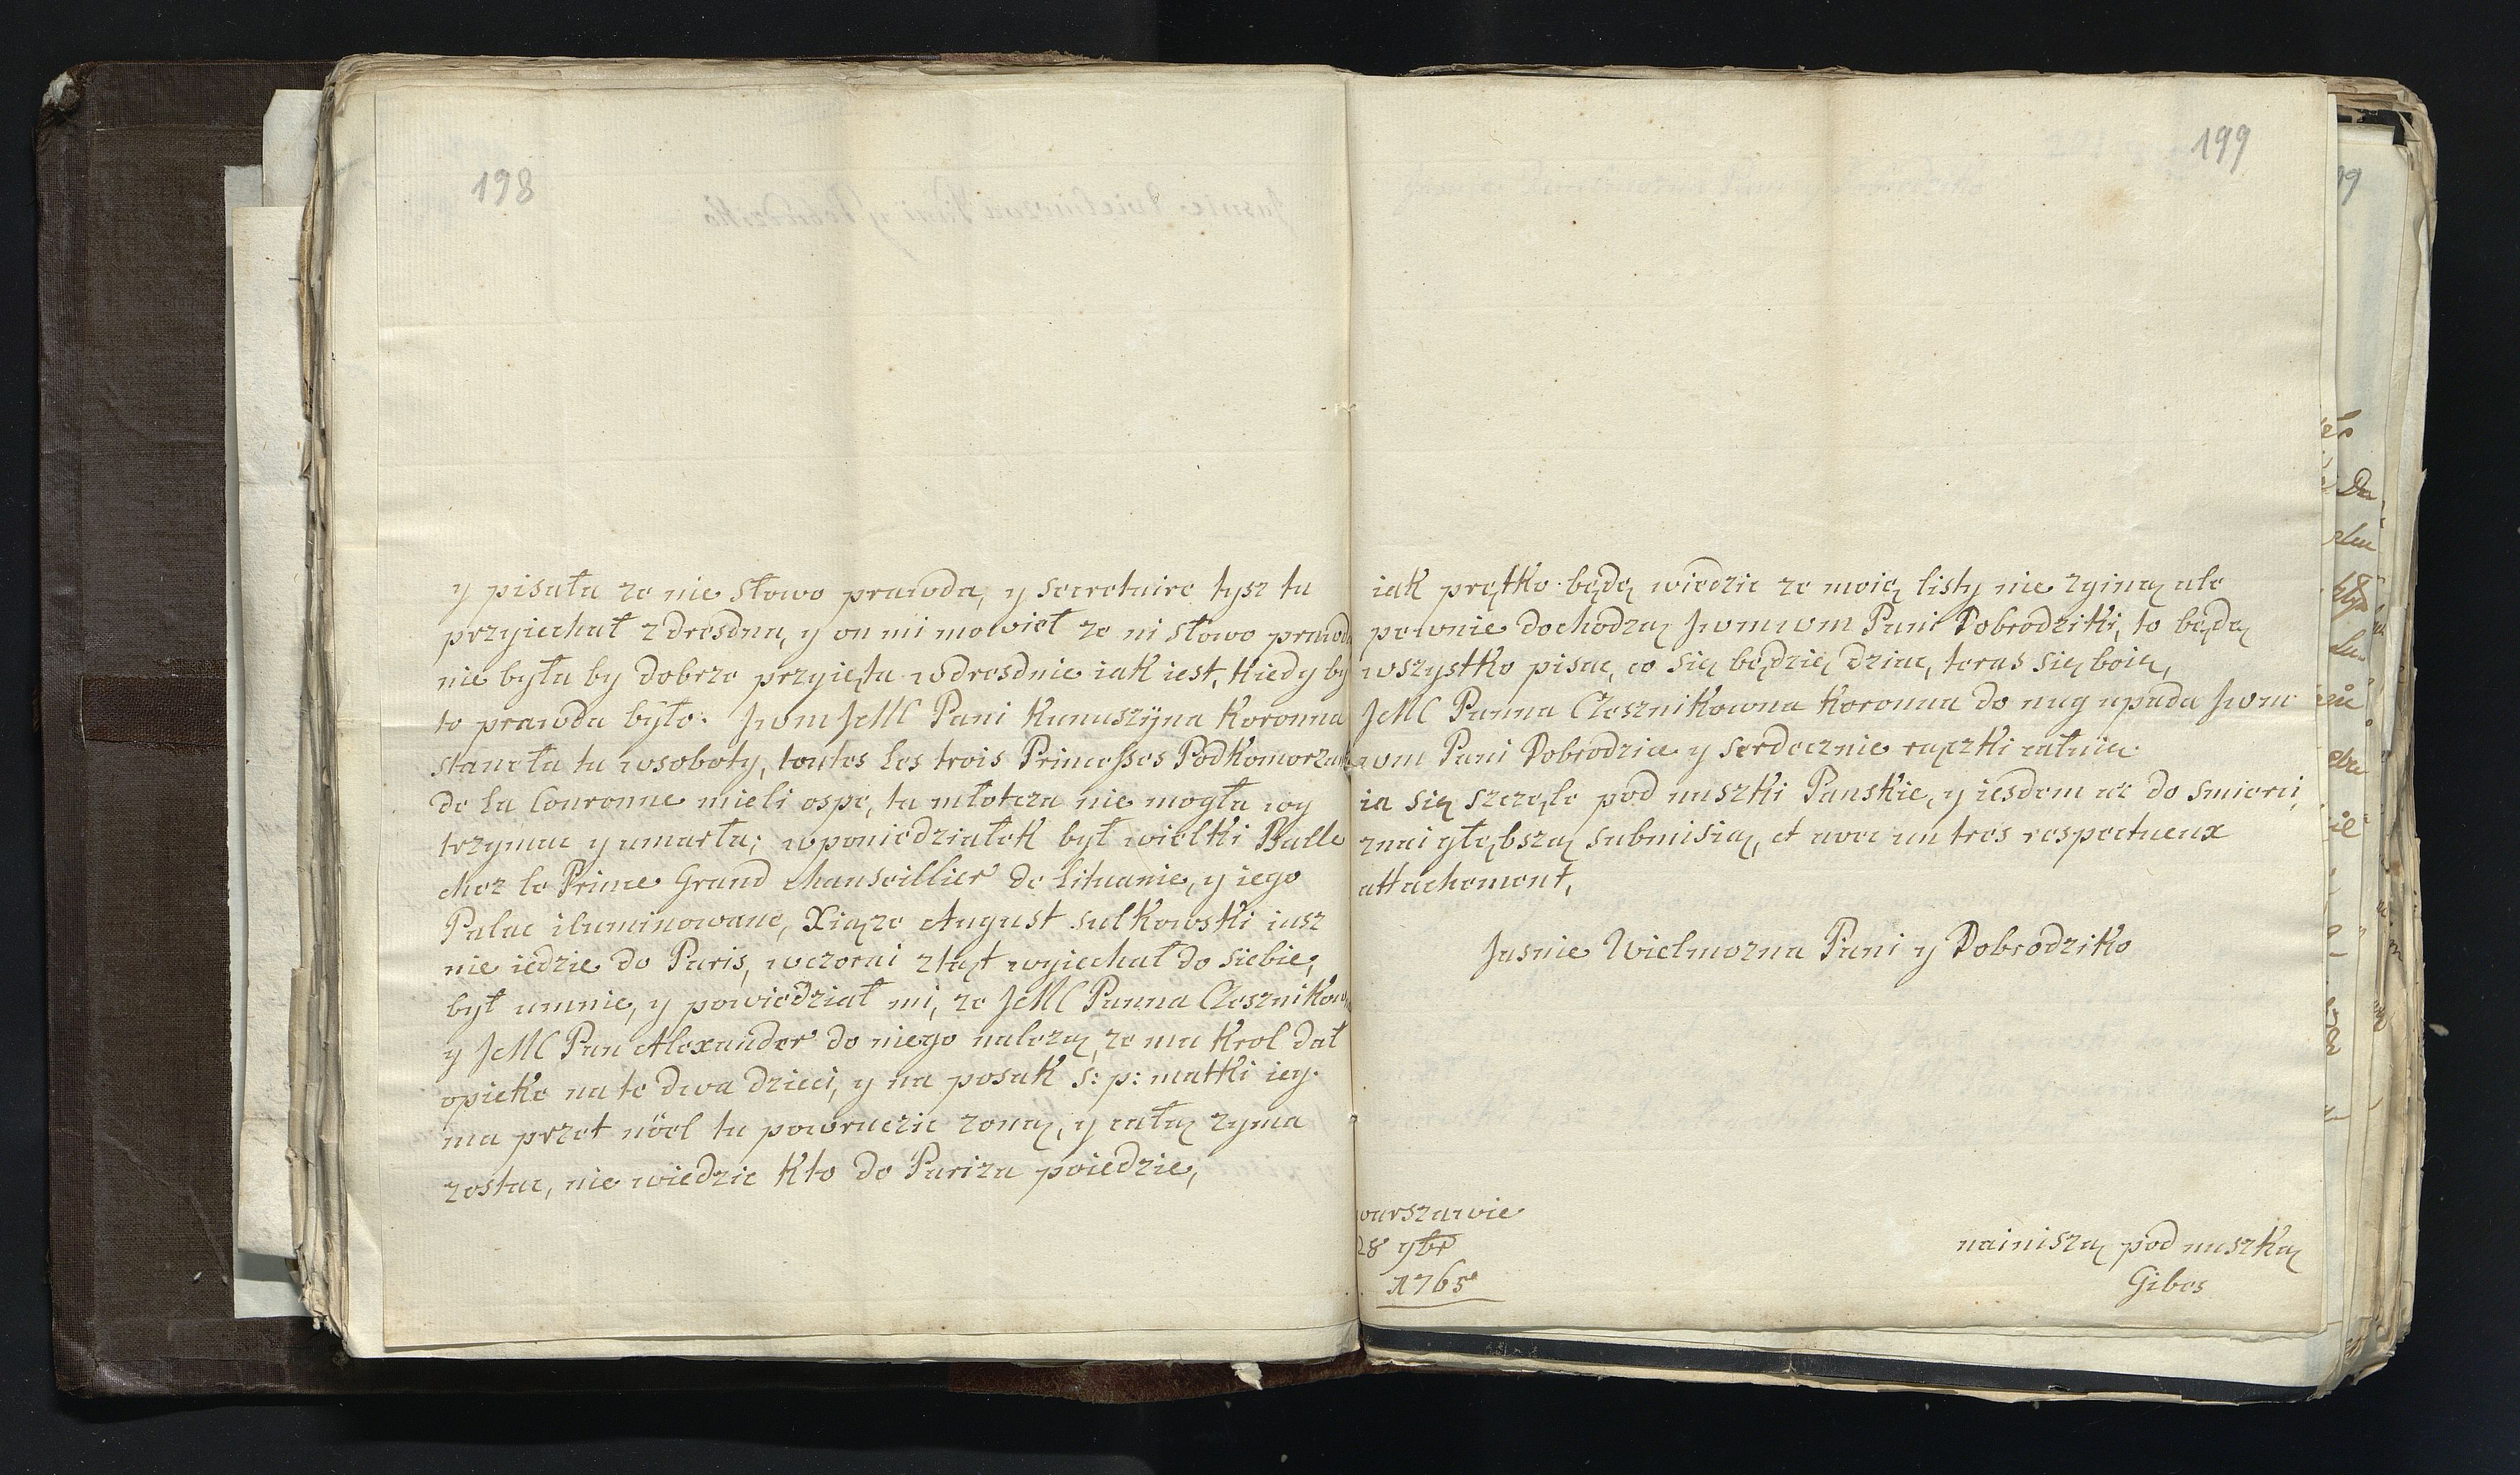 198
y pisała ze nie słowo prawda, y secretaire tysz tu
przyiechał z dresdna, y on mi mowieł ze ni słowo prawda
nie była by dobrze przyięta w dresdnie iak iest, kiedy by
to prawda było. Jwm JeMC Pani Kunuszÿna Koronna
staneła tu w soboty, toutes les trois Princesses Podkomorzan
de La Couronne mieli ospe, ta młotcza nie mogła wy
trzymac y umarła; w poniedziałek był wielki Balle
chez le Prince Grand Chanseillier de Lituanie, y iego
Palac iluminowane, Xiąze August sulkowski iusz
nie iedzie do Paris, wczorai ztąt wyiechał do siebie,
był umnie, y powiedział mi, ze JeMC Panna Czesznikow
y JeMC Pan Alexander do niego nalezą, ze ma Krol dał
opieke na te dwa dzieci, y na posak s: p: matki iey.
ma przet nöel tu powruczic zoną, y całą zyma
zostac, nie wiedzic kto do Pariza poiedzie,
199
iak prętko będę wiedzic ze moię listy nie zginą ale
pewnie dochodzą Jwmwm Pani Dobrodziki, to będą
wszystko pisac, co się będzię dziac, teras się boię,
JeMC Panna Czesznikowna Koronna do nug upada Jwm
wm Pani Dobrodzice y serdecznie rączki całuie.
ia się szczęle pod nuszki Panskie, y iesdem az do smierci,
znaigłębszą submisią, et avec un tres respectueux
attachement,
Jasnie Wielmozna Pani y Dobrodziko
warszawie
28 9br
1765
nainiszą pod nuszką
Gibes